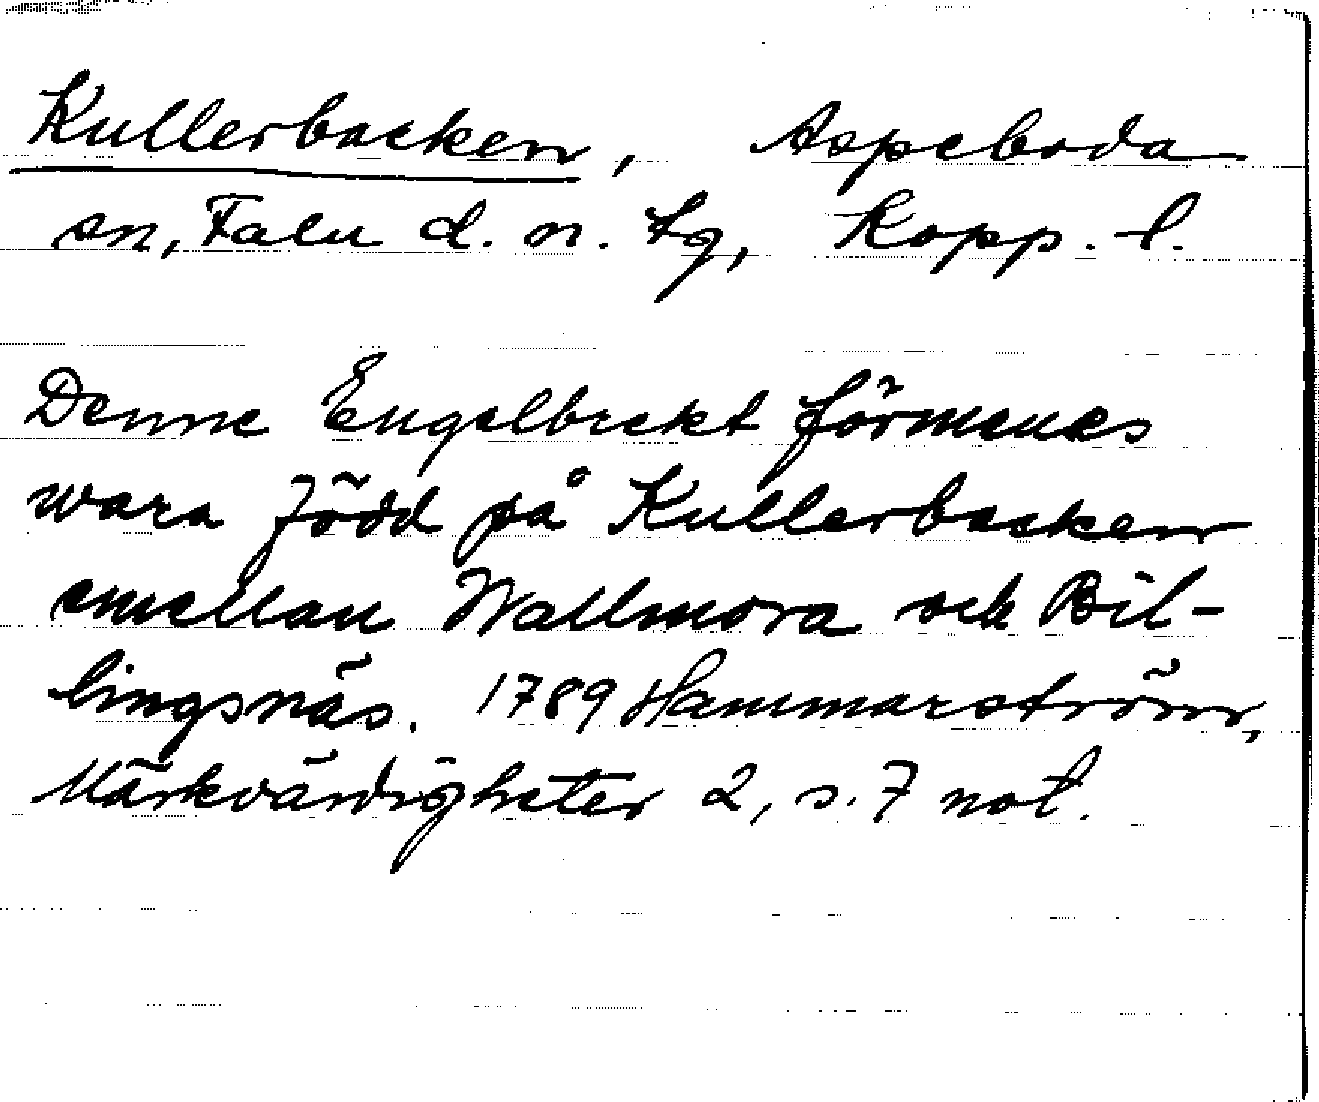 Kullerbacken, Aspeboda
sn, Falu d. n. tg, Kopp. l.
Denne Engelbrekt förmenes
wara född på Kullerbacken
emellan Wallmora och Bil-
lingsnäs. 1789 Hammarström,
Märkvärdigheter 2, s. 7 not.